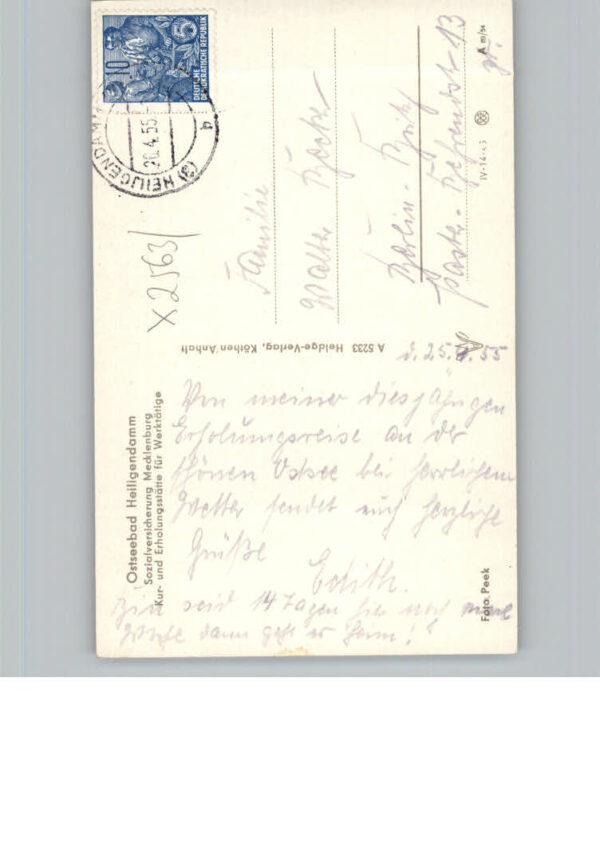 Ostseebad Heiligendamm
Sozialversicherung Mecklenburg
Kur- und Erholungsstätte für Werktätige
d. 25.4.55
Von meiner diesjährigen
Erholungsreise an der
schönen Ostsee bei herrlichem
Wetter sendet euch herzliche
Grüße
Edith.
Bin seid 14 Tagen hier noch eine
Woche dann geht es heim!
Foto Peek
A 5233 Heldge-Verlag, Köthen/Anhalt
X 2563/
DEUTSCHE
DEMOKRATISCHE REPUBLIK
10
5
(3) HEILIGENDAMM
26.4.55
a
Familie
Walter
Berlin - Britz
13
IV-14-45
A